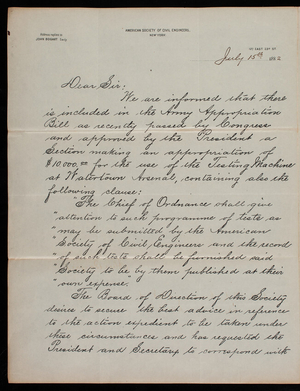 AMERICAN SOCIETY OF CIVIL ENGINEERS,
NEW YORK.
JOHN BOGART
July 15th 1882
Dear Sir:
We are informed that there
is included in the Army Appropriation
Bill as recently passed by Congress
and approved by the President a
Section making an appropriation of
$10,000.00 for the use of the Testing Machine
at Watertown Arsenal, containing also the
following clause:
"The Chief of Ordnance shall give
"attention to such programme of tests as
"may be submitted by the American
"Society of Civil Engineers and the record
"of such tests shall be furnished said
"Society to be by them published at their
"own expense."
The Board of Direction of this Society
desire to secure the best advice in reference
to the action expedient to be taken under
these circumstances and has requested the
President and Secretary to correspond with